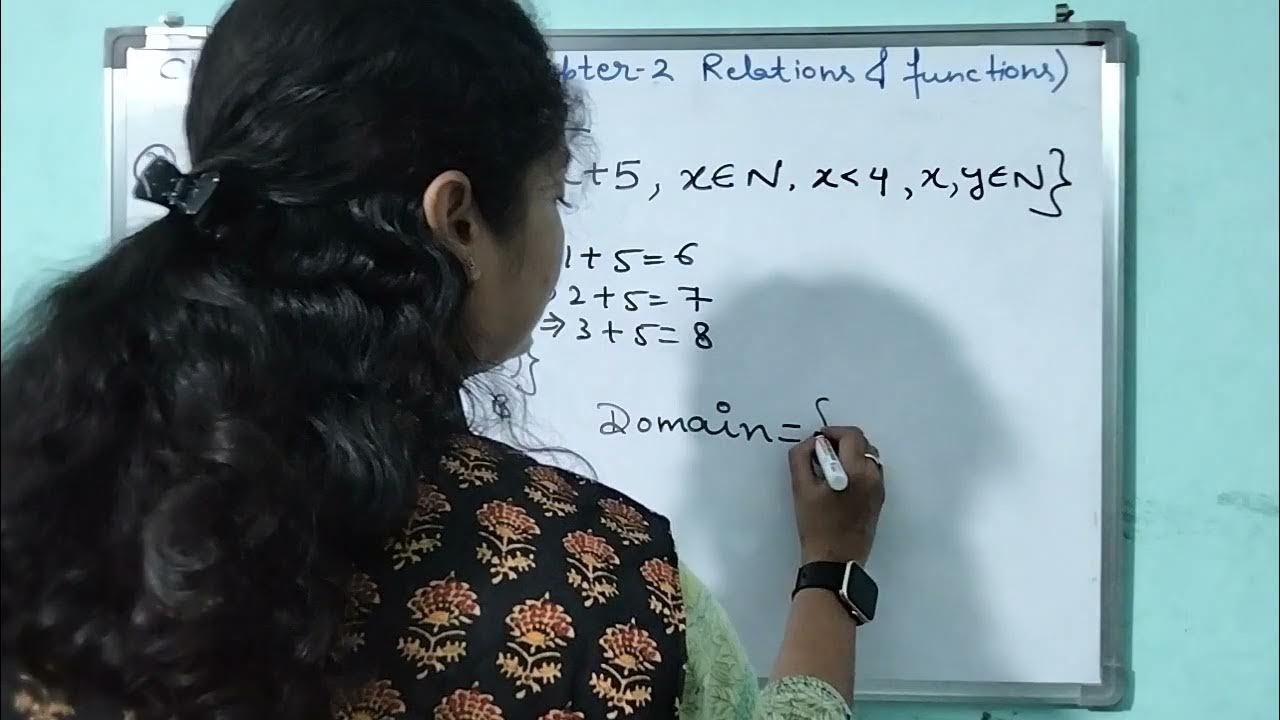 Relations & functions)
+5, x∈N, x<4, x, y∈N}
1+5=6
2+5=7
⇒ 3+5=8
}
Domain={